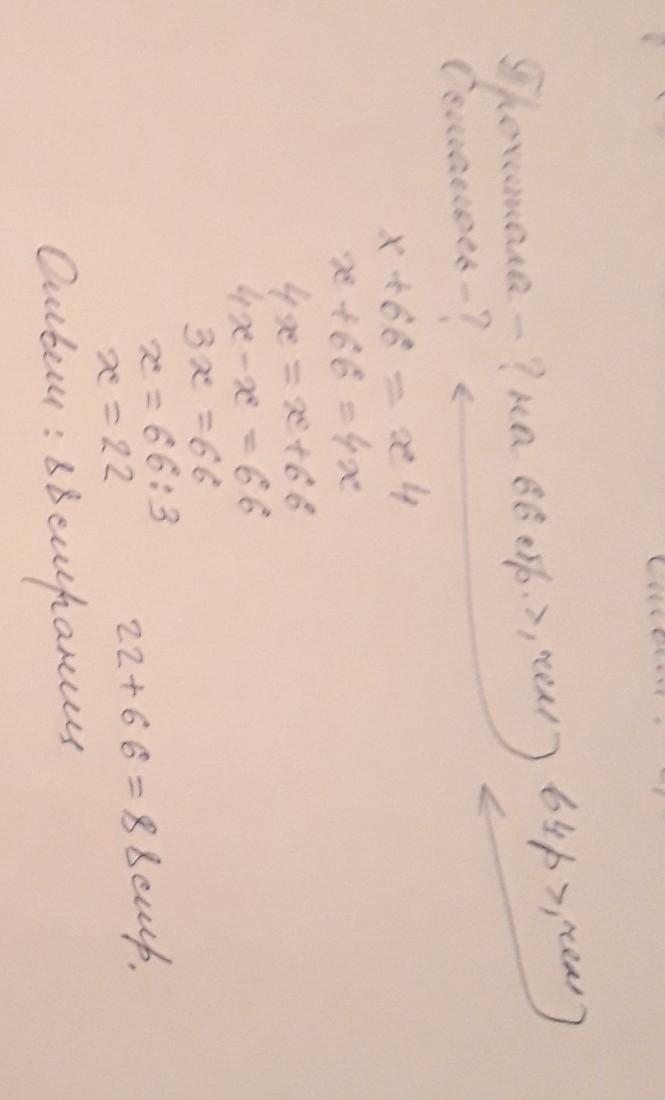 Прочитала - ? на 66 стр. >, чем в 4 р >, чем
Осталось - ?
x + 66 = x 4
x + 66 = 4x
4x = x + 66
4x - x = 66
3x = 66
x = 66 : 3
x = 22 22 + 66 = 88 стр.
Ответ : 88 страниц